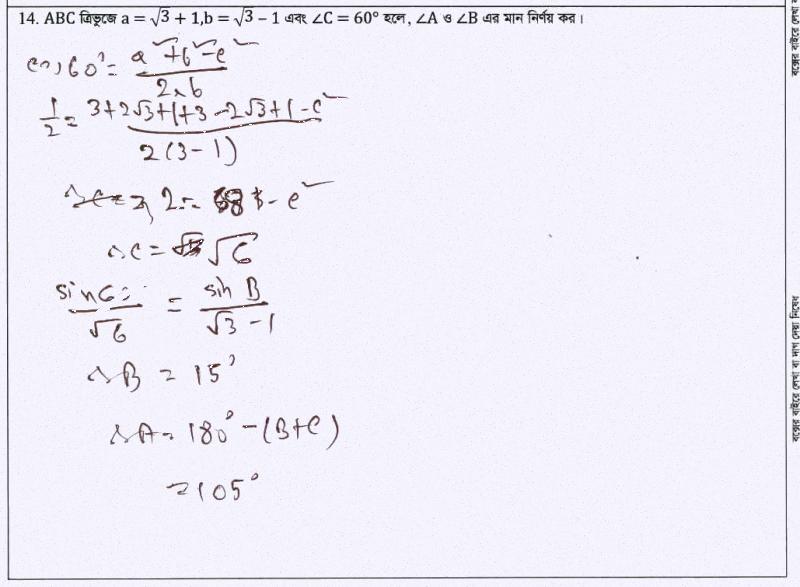 14. ABC ত্রিভুজে a = √3 + 1, b = √3 − 1 এবং ∠C = 60° হলে, ∠A ও ∠B এর মান নির্ণয় কর।
cos60° = (a²+b²-c²)/(2ab)
1/2 = (3+2√3+1+3-2√3+1-c²)/(2(3-1))
2 = 8 - c²
∴ c = √6
sin60°/√6 = sin B/(√3-1)
∴ B = 15°
∴ A = 180° - (B+C)
= 105°
বক্সের বাইরে লেখা বা দাগ দেয়া নিষেধ